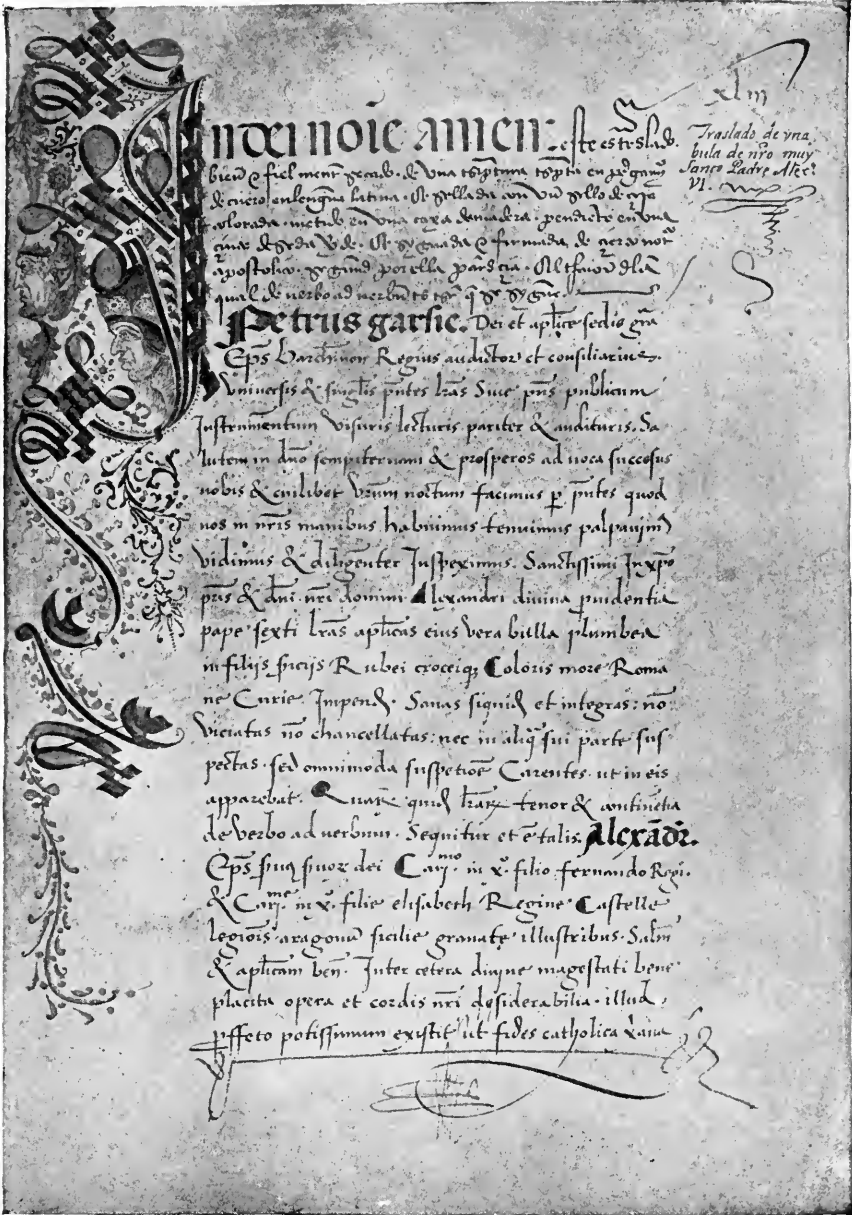 n dei noīe amen: este es treslado
bien & fiel mente secado. de vna escriptura escripta en pergamino
de cuero en lengua latina. & sellada con vn sello de cera
colorada. metido en vna caxa de madera. pendiente en vna
cinta de seda verde. & sygnada & firmada de cierto notº
apostolico. segund por ella parescia. El thenor dela
qual de verbo ad verbum es este que se sygue.
Petrus garsie. Dei et aplice sedis grā
Eps Barchinon Regius auditor et consiliarius.
Vniuersis & singlis pntes lrās Siue pns publicum
Instrumentum visuris lecturis pariter & audituris. Sa
lutem in dno sempiternam & prosperos ad uota succesus
uobis & cuilibet vrūm notum facimus p pntes quod
nos in nr̄is manibus habuimus tenuimus palpauim⁹
vidimus & diligenter Inspeximus. Sanctissimi In xpo
pr̄is & dni. nr̄i domini Alexandri diuina puidentia
pape sexti lrās aplicas eius vera bulla plumbea
in filijs sericijs Rubei croceiq Coloris more Roma
ne Curie. Impend. Sanas siquid et integras: nō
viciatas nō chancellatas: nec in aliq sui parte sus
pectas. sed omnimoda suspetiōe Carentes. ut in eis
apparebat. Quar quid lrar tenor & continētia
de verbo ad verbum. Sequitur et ē talis. Alexādr.
Eps seruq seruor dei Carimo. in x°. filio fernando Regi.
& Carime. in x°. filie elisabeth Regine Castelle
legiois aragonū sicilie granate illustribus. Saltm
& aplicam ben. Inter cetera diuine magestati bene
placita opera et cordis nr̄i desiderabilia. illud
pffeto potissimum existit ut fides catholica Xana
xlm
Traslado de vna
bula de nr̄o muy
Sanço Padre Alex.
VI.